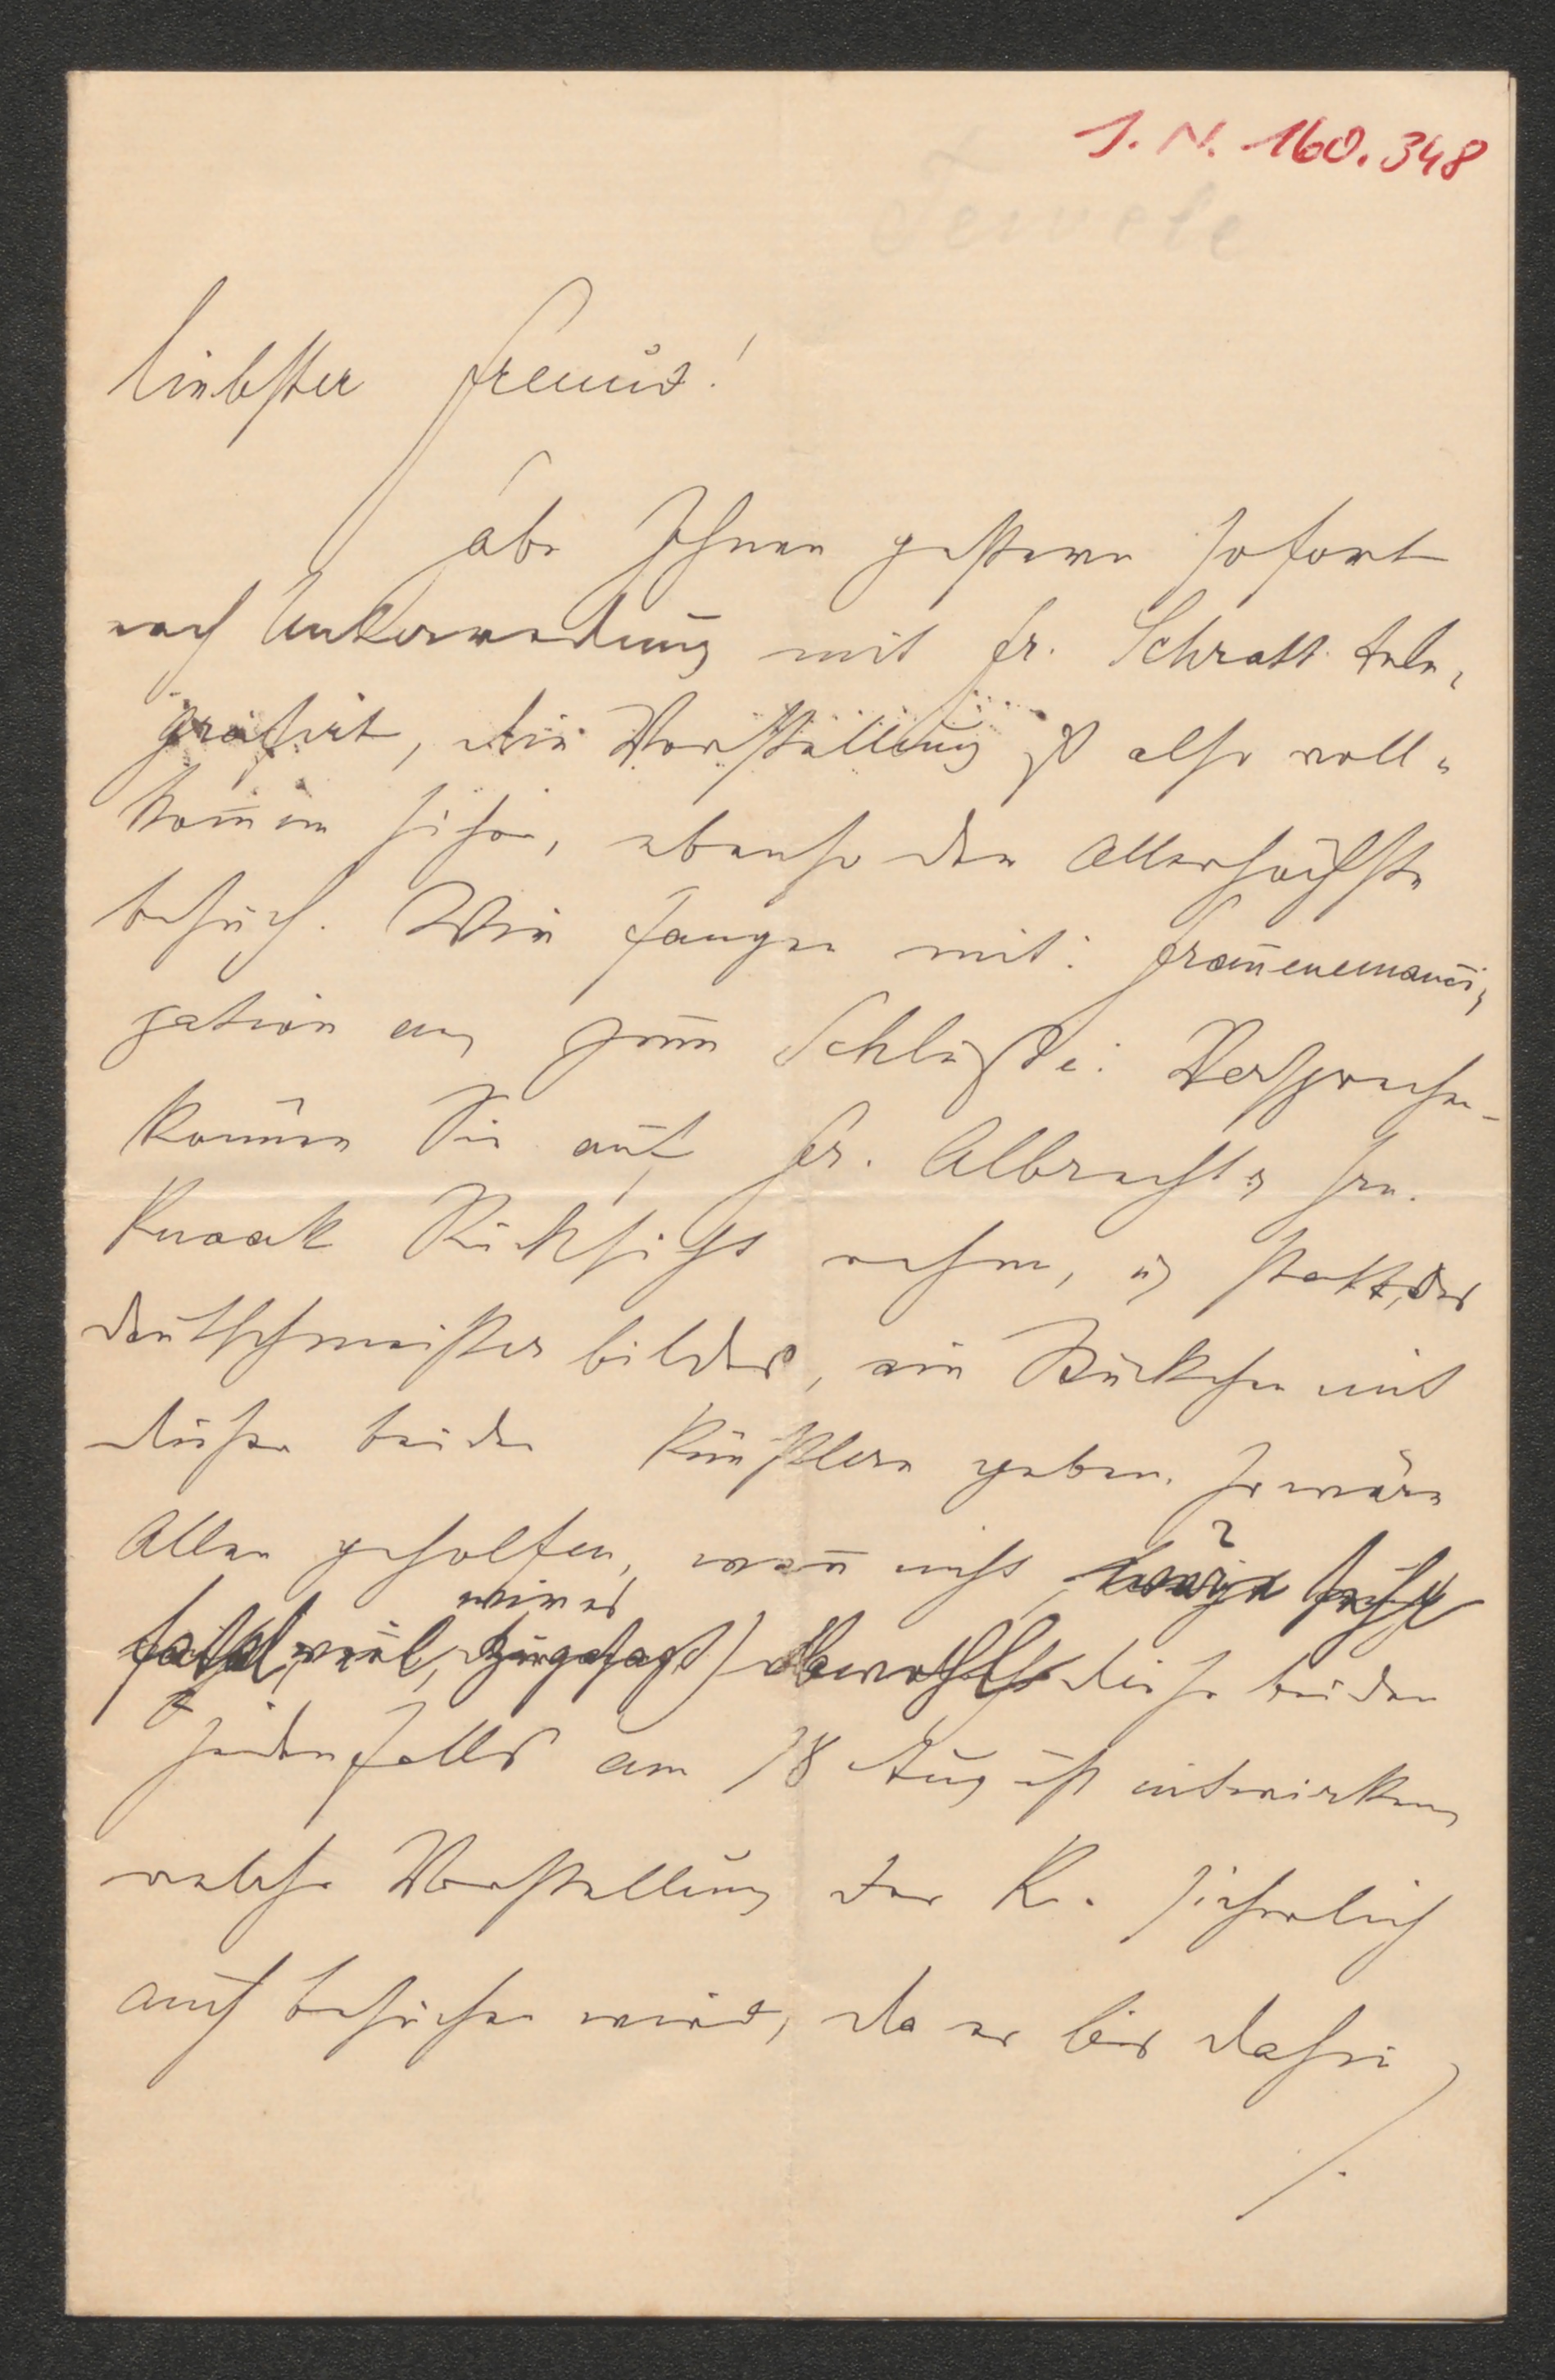 J. N. 160.348
Liebster Freund!
Habe Ihnen gestern sofort
nach Unterredung mit Fr. Schratt tele-
grafirt, die Vorstellung ist also voll-
kom̄en sicher, ebenso der Allerhöchste
Besuch. Wir fangen mit: Frauenemanci-
pation an Schluße: Versprechen
können Sie auf Fr. Albrecht u Hrn.
Knaak Rücksicht nehmen, u statt des
Deutschmeisterbildes, ein Stückchen mit
diesen beiden Künstlern geben. So wäre
Allen geholfen, wen̄ nicht
mir es
weil, zugesagt) diese beiden
jedenfalls am 18 August mitwirken,
welche Vorstellung der K. sicherlich
auch besuchen wird, da er bis dahin
/.